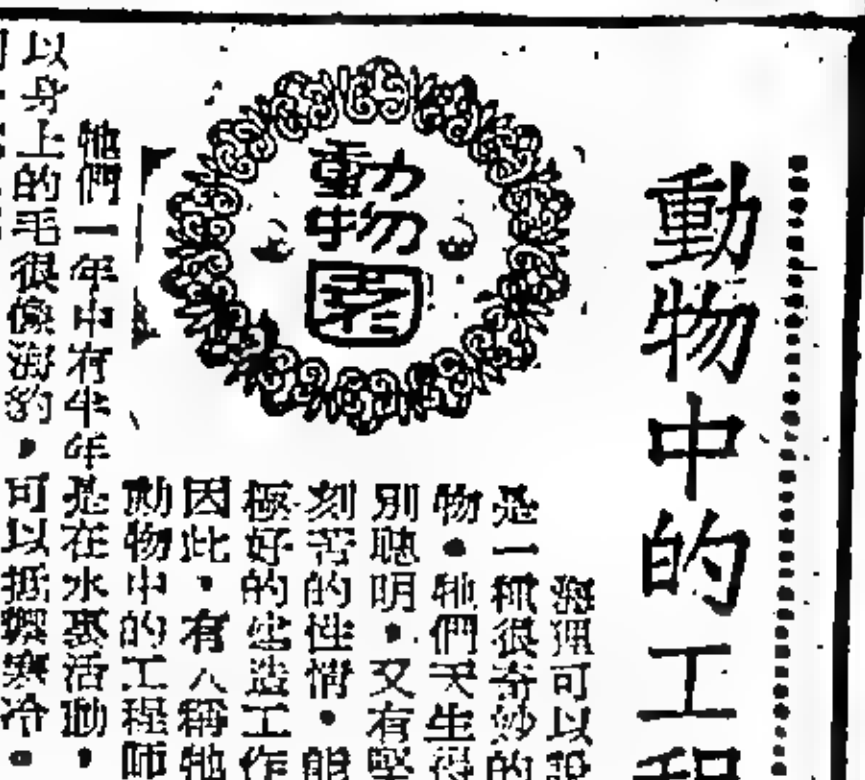 動物中的工程
動物園
海狸可以說
是一種很奇妙的
物。牠們天生得
別聰明，又有堅
刻苦的性情。能
極好的建造工作
因此，有人稱牠
動物中的工程師
牠們一年中有半年是在水裏活動，
以身上的毛很像海豹，可以抵禦寒冷。